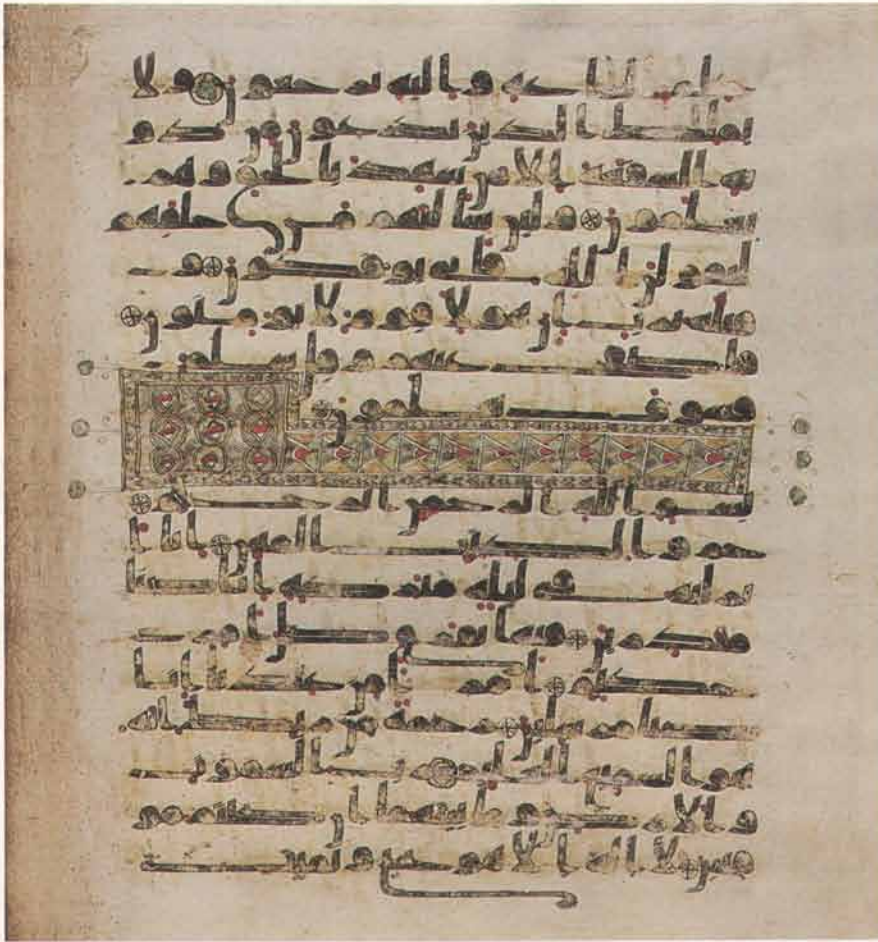 علم الساعة واليه ترجعون ولا
يملك الذين يدعون من دو
نه الشفعة الا من شهد بالحق وهم
يعلمون ولئن سالتهم من خلقهم
ليقولن الله فانى يوفكون وقيـ
ـله يرب ان هولا قوم لا يومنون
فاصفح عنهم وقل سلم
فسوف يعلمون
بسم الله الرحمن الرحيم
حم والكتب المبين انا ا
نزلنه في ليلة مبركة انا كنا
منذرين فيها يفرق كل امر
حكيم امرا من عندنا انا كنا
مرسلين رحمة من ربك انه
هو السميع العليم رب السموت
والارض وما بينهما ان كنتم مو
قنين لا اله الا هو يحي ويميت